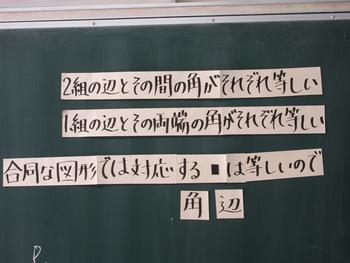 2組の辺とその間の角がそれぞれ等しい
1組の辺とその両端の角がそれぞれ等しい
合同な図形では対応する ■ は等しいので
角 辺